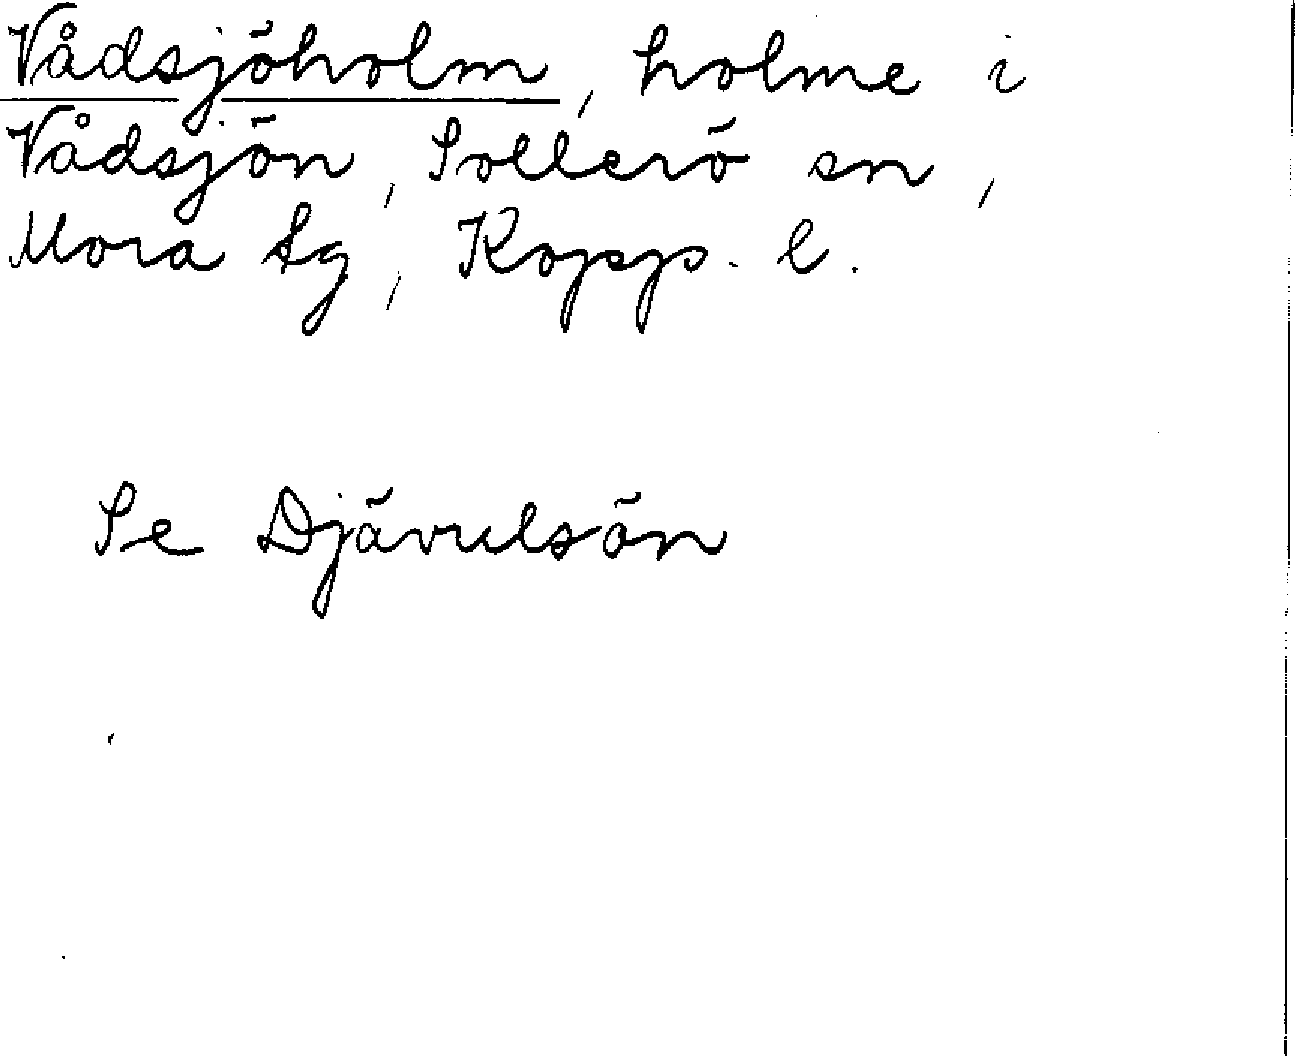 Vådsjöholm, holme i
Vådsjön, Sollerö sn,
Mora tg, Kopp. l.
Se Djävulsön